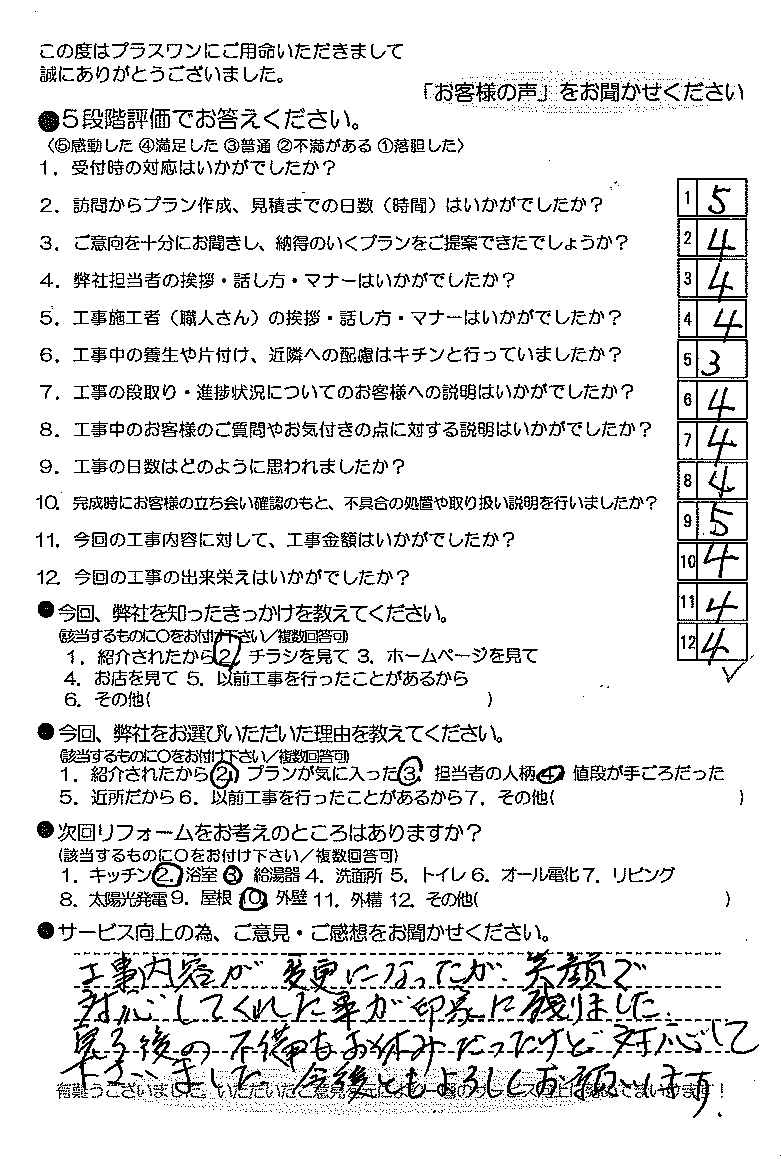 この度はプラスワンにご用命いただきまして
誠にありがとうございました。
「お客様の声」をお聞かせください
●5段階評価でお答えください。
〈⑤感動した ④満足した ③普通 ②不満がある ①落胆した〉
1. 受付時の対応はいかがでしたか?
2. 訪問からプラン作成、見積までの日数(時間)はいかがでしたか?
3. ご意向を十分にお聞きし、納得のいくプランをご提案できたでしょうか?
4. 弊社担当者の挨拶・話し方・マナーはいかがでしたか?
5. 工事施工者(職人さん)の挨拶・話し方・マナーはいかがでしたか?
6. 工事中の養生や片付け、近隣への配慮はキチンと行っていましたか?
7. 工事の段取り・進捗状況についてのお客様への説明はいかがでしたか?
8. 工事中のお客様のご質問やお気付きの点に対する説明はいかがでしたか?
9. 工事の日数はどのように思われましたか?
10. 完成時にお客様の立ち会い確認のもと、不具合の処置や取り扱い説明を行いましたか?
11. 今回の工事内容に対して、工事金額はいかがでしたか?
12. 今回の工事の出来栄えはいかがでしたか?
1 5
2 4
3 4
4 4
5 3
6 4
7 4
8 4
9 5
10 4
11 4
12 4
●今回、弊社を知ったきっかけを教えてください。
(該当するものに○をお付け下さい/複数回答可)
1. 紹介されたから 2. チラシを見て 3. ホームページを見て
4. お店を見て 5. 以前工事を行ったことがあるから
6. その他( )
●今回、弊社をお選びいただいた理由を教えてください。
(該当するものに○をお付け下さい/複数回答可)
1. 紹介されたから 2. プランが気に入った 3. 担当者の人柄 4. 値段が手ごろだった
5. 近所だから 6. 以前工事を行ったことがあるから 7. その他( )
●次回リフォームをお考えのところはありますか?
(該当するものに○をお付け下さい/複数回答可)
1. キッチン 2. 浴室 3 給湯器 4. 洗面所 5. トイレ 6. オール電化 7. リビング
8. 太陽光発電 9. 屋根 10. 外壁 11. 外構 12. その他( )
●サービス向上の為、ご意見・ご感想をお聞かせください。
工事内容が変更になったが、笑顔で
対応してくれた事が印象に残りました。
完了後の不備もお休みだったけど対応して
下さいました。今後ともよろしくお願いします。